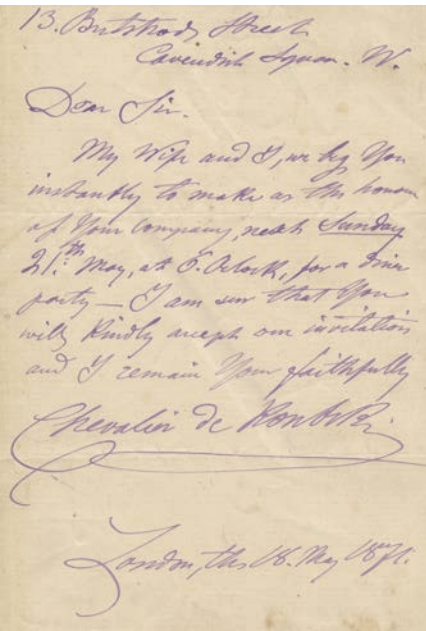 13. Street
Cavendish Square. W.
Dear Sir.
My Wife and I, we beg You
instantly to make us the honour
of Your company, next Sunday
21.th May, at 6. Oclock, for a diner
party — I am sur that You
will Kindly accept our invitation
and I remain Your faithfully
Chevalier de
London, the 18. May 1871.